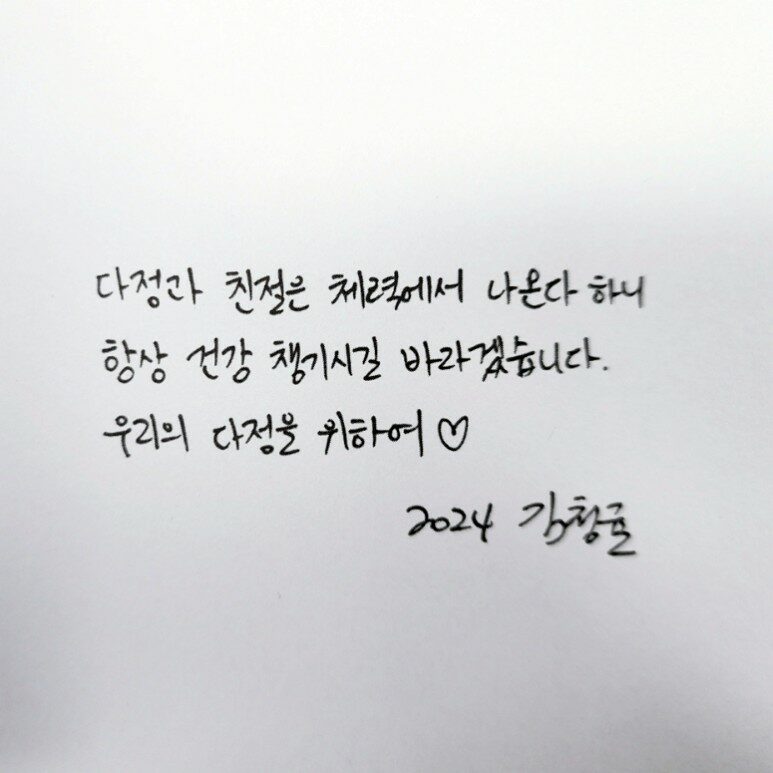 다정과 친절은 체력에서 나온다 하니
항상 건강 챙기시길 바라겠습니다.
우리의 다정을 위하여♡
2024